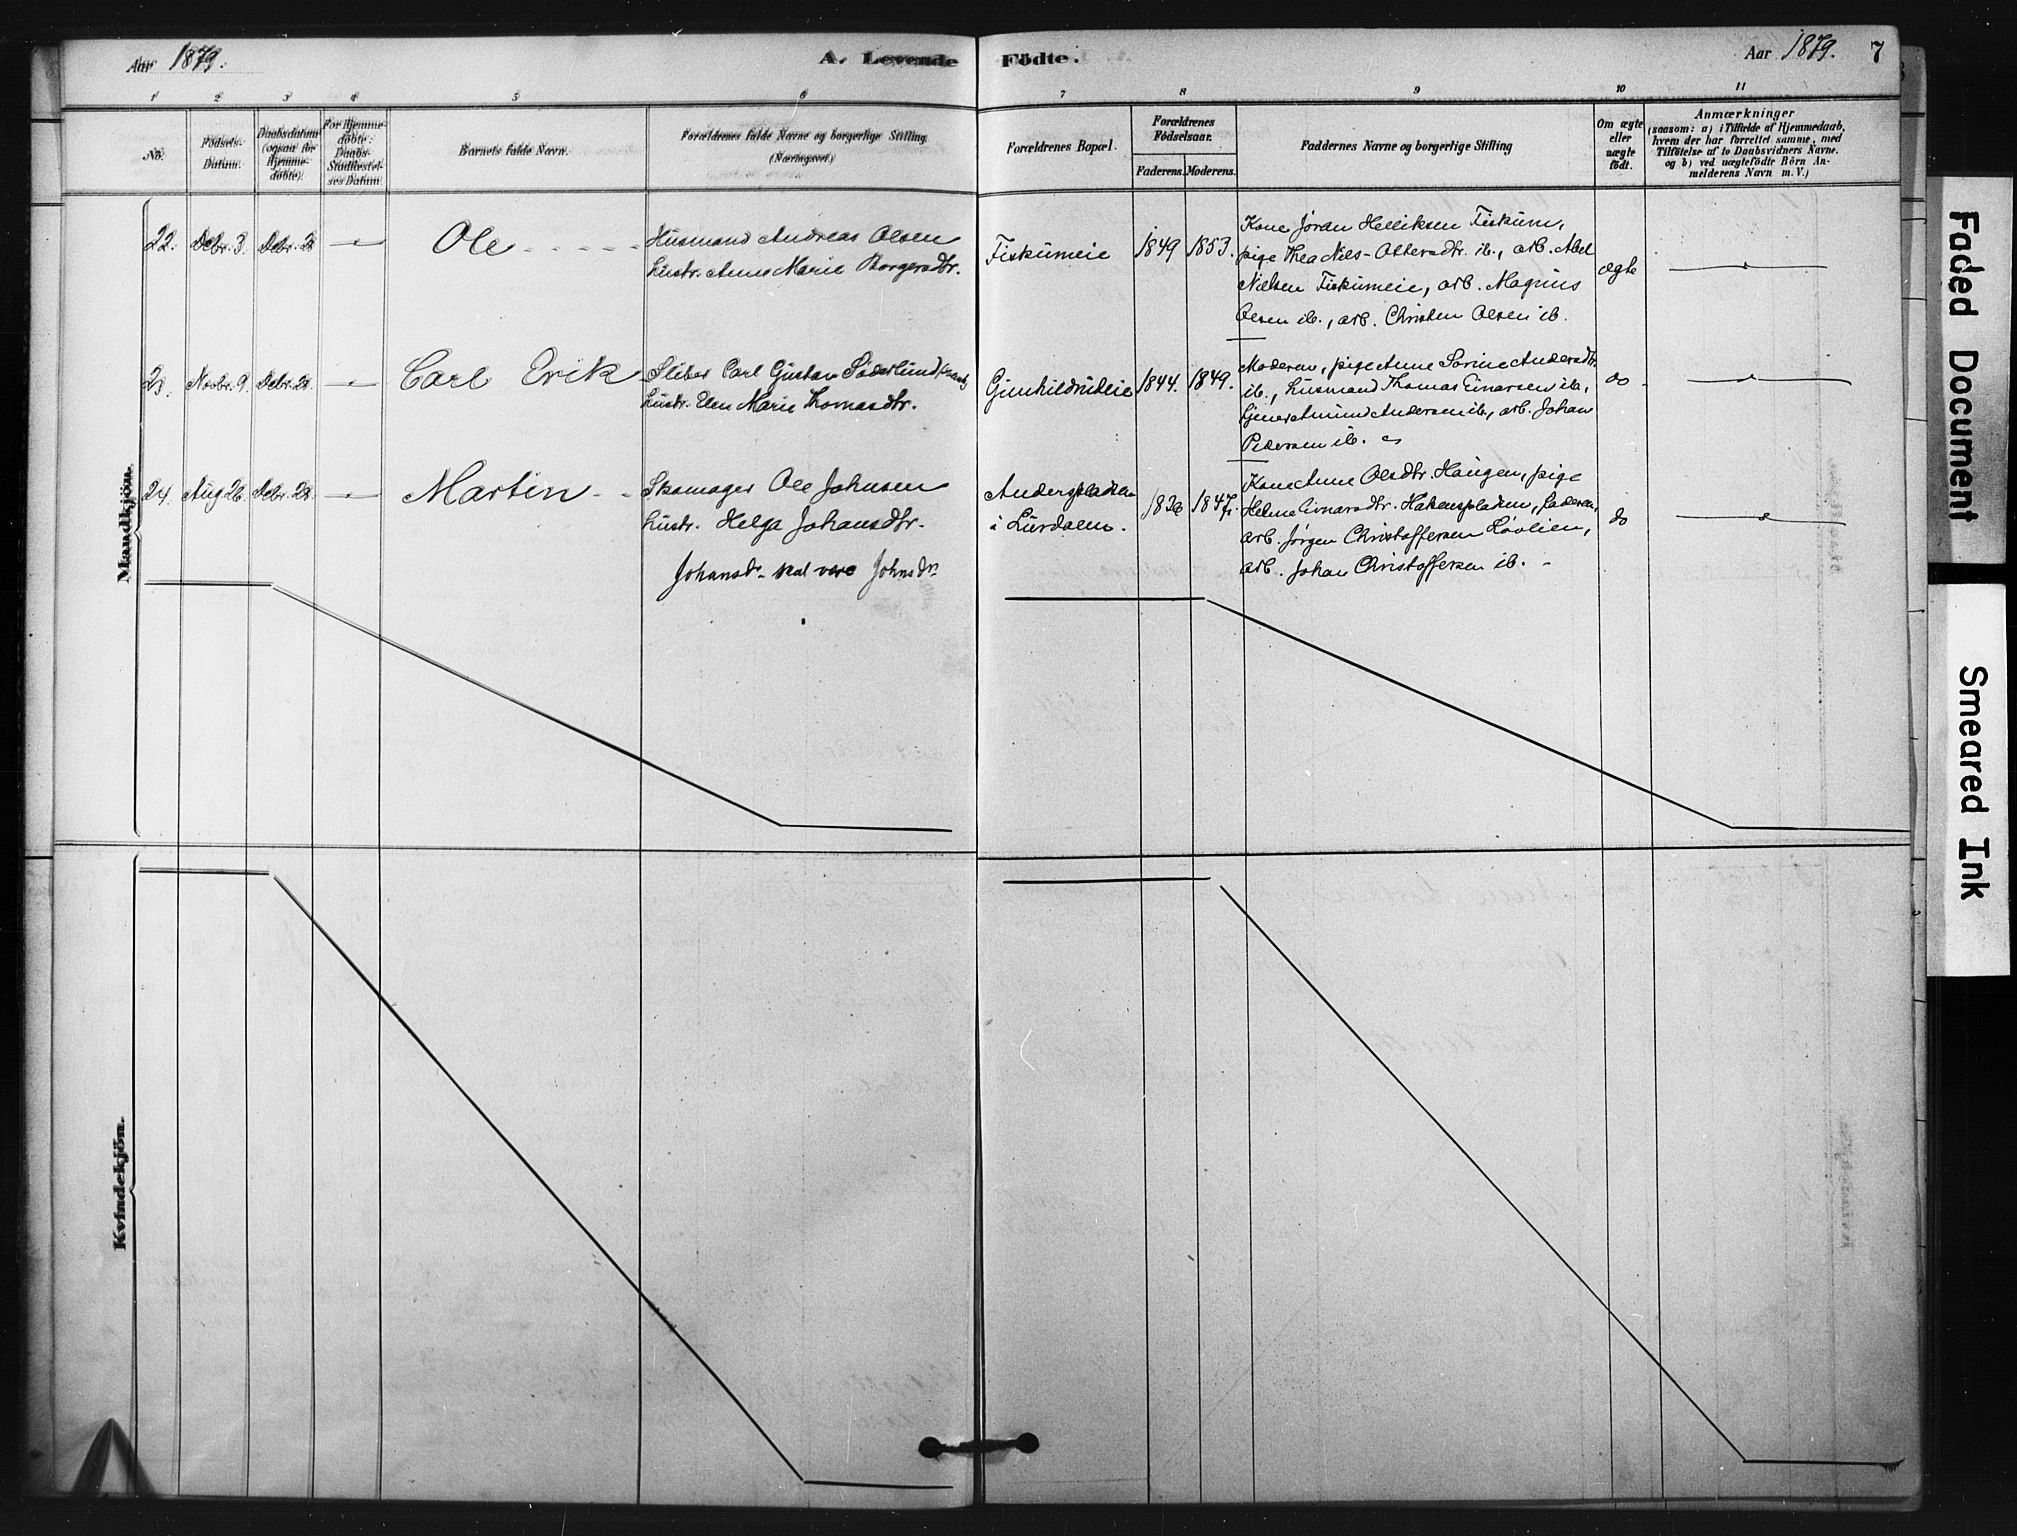 Aar 1879.
A. Levende Födte.
Aar 1879. 7
1 2 3 4 5 6 7 8 9 10 11
No.
Födsels-
Datum.
Daabsdatum
(ogsaa for
Hjemme-
döbte).
For Hjemme-
döbte:
Daabs-
Stadfæstel-
ses Datum.
Barnets fulde Navn.
Forældrenes fulde Navne og borgerlige Stilling
(Næringsvei)
Forældrenes Bopæl.
Forældrenes
Födselsaar.
Faderens. Moderens.
Faddernes Navne og borgerlige Stilling
Om ægte
eller
uægte
födt.
Anmærkninger
(saasom: a) i Tilfælde af Hjemmedaab,
hvem der har forrettet samme, med
Tilföielse af to Daabsvidners Navne.
og b) ved uægtefödte Börn An-
melderens Navn m. V.)
Mandkjön.
22. Decbr. 3. Decbr. Ole
Husmand Andreas Olsen
hustr. Anne Marie Borgersdtr.
Fiskumeie 1849 1853.
Kone Jöran Helliksen Fiskum,
pige Thea Niels-Ottersdtr. ib., arb. Abel
Nielsen Fiskumeie, arb. Magnus
Olsen ib., arb. Christen Olsen ib.
ægte
23. Novbr. 9. Decbr. 28. Carl Erik
Sliber Carl Gustav Söderlund
hustr. Elen Marie Thomasdtr.
1844. 1849.
Moderen, pige Anne Sorine Andersdtr.
ib., husmand Thomas Einarsen ib.,
tjener Amund Andersen ib., arb. Johan
Pedersen ib.
do
24. Aug 26. Decbr. 28. Martin
Skomager Ole Johnsen
hustr. Helga Johansdtr.
Johansdr. skal være Johnsdr.
Anderspladsen
i Lurdalen.
1847
Kone Anne Olsdtr. Haugen, pige
Helene Einarsdtr. Hakenspladsen, Faderen,
arb. Jörgen Christoffersen Kövlien,
arb. Johan Christoffersen ib.
do
Kvindekjön.
Faded Document
Smeared Ink